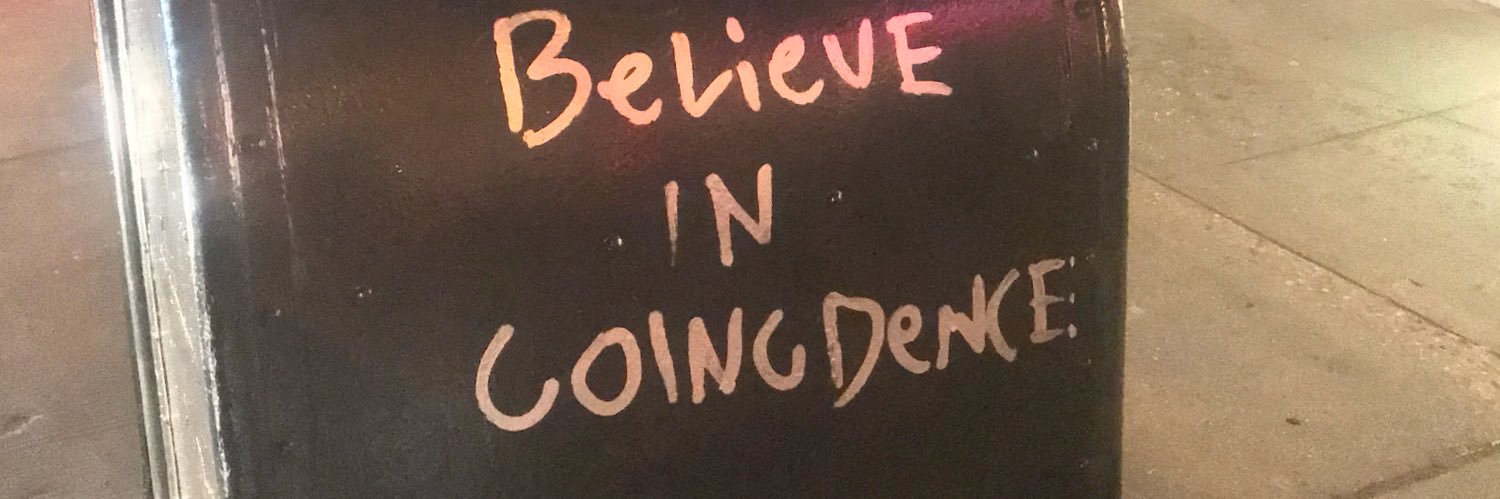 BeLieVE
IN
COINCDeNCE